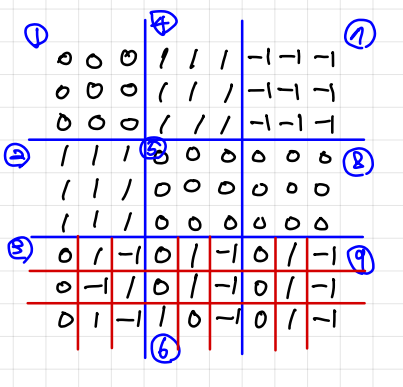 ① ④ ⑦
0 0 0 1 1 1 -1 -1 -1
0 0 0 1 1 1 -1 -1 -1
0 0 0 1 1 1 -1 -1 -1
② 1 1 1 ⑤ 0 0 0 0 0 0 ⑧
1 1 1 0 0 0 0 0 0
1 1 1 0 0 0 0 0 0
③ 0 1 -1 0 1 -1 0 1 -1 ⑨
0 -1 1 0 1 -1 0 1 -1
0 1 -1 1 0 -1 0 1 -1
⑥